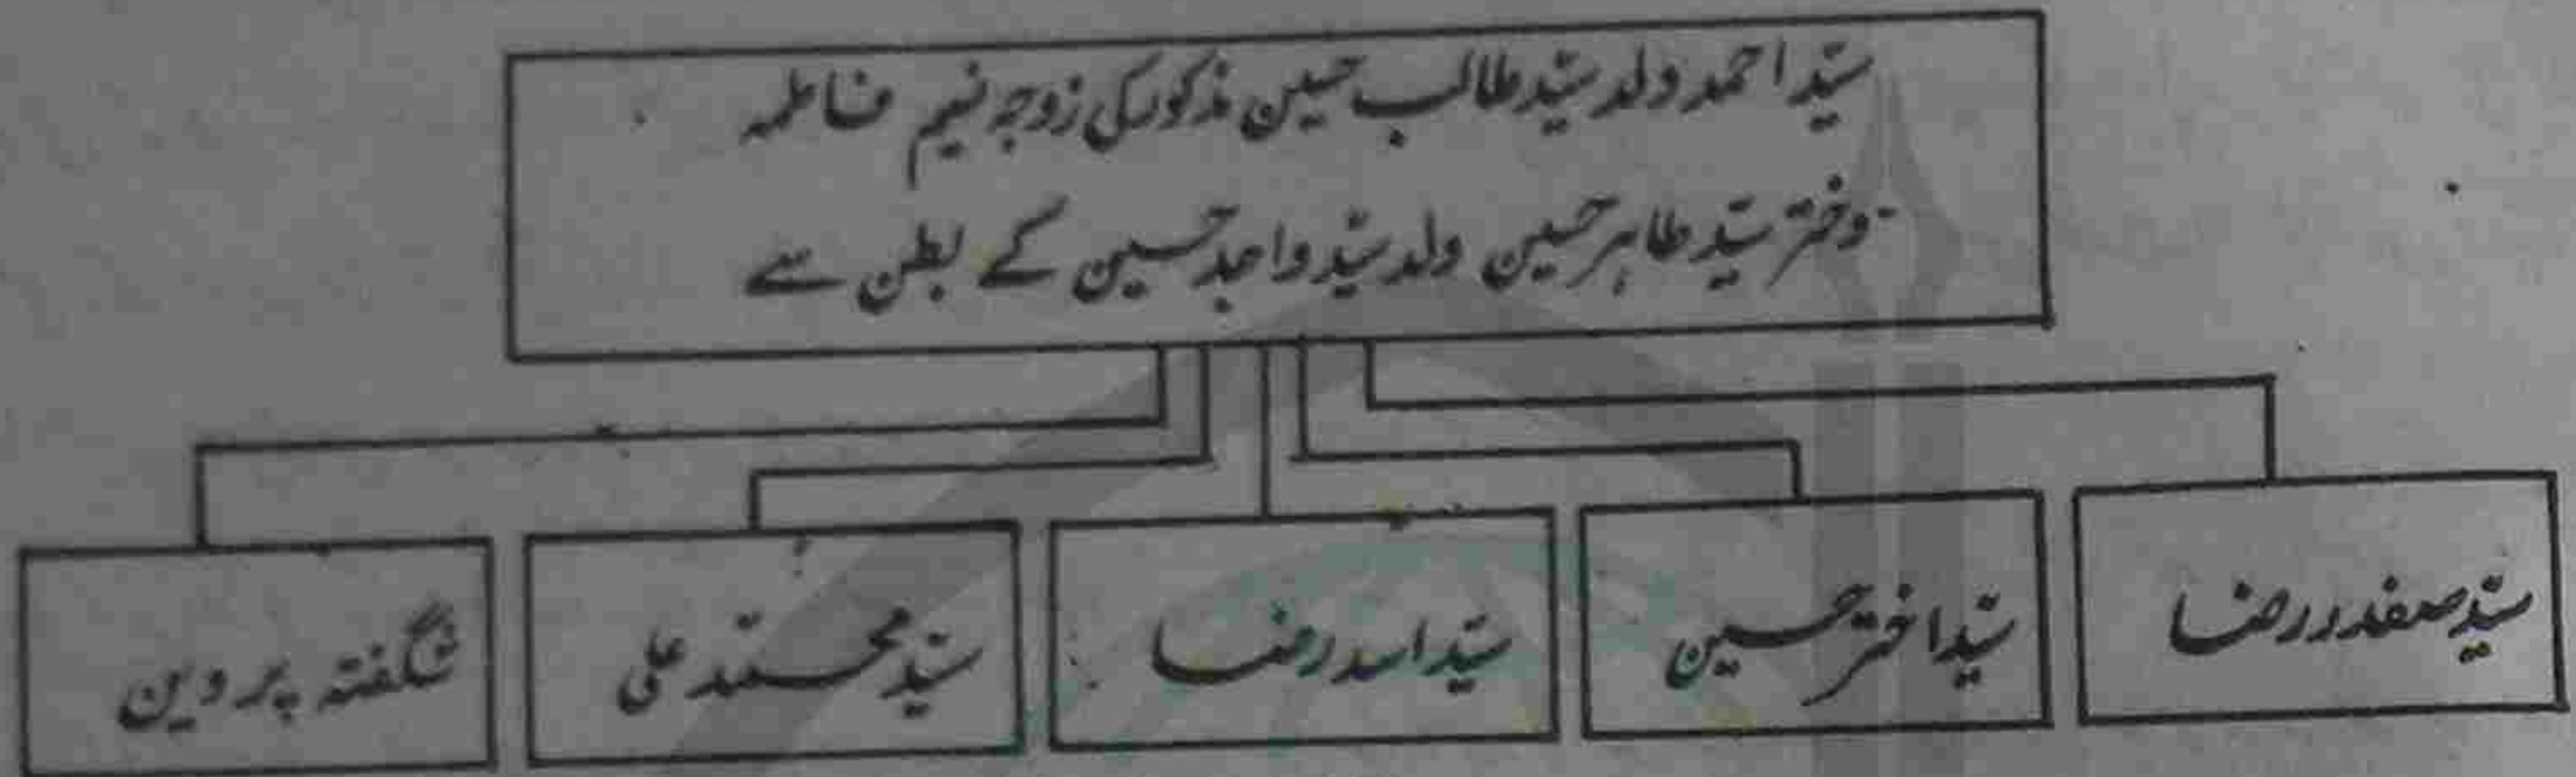 سیّد احمد ولد سیّد طالب حسین مذکور کی زوجہ نسیم فاطمہ
دختر سیّد طاہر حسین ولد سیّد واجد حسین کے بطن سے
سیّد صفدر رضا
سیّد اختر حسین
سیّد اسد رضا
سیّد محمّد علی
شگفتہ پروین